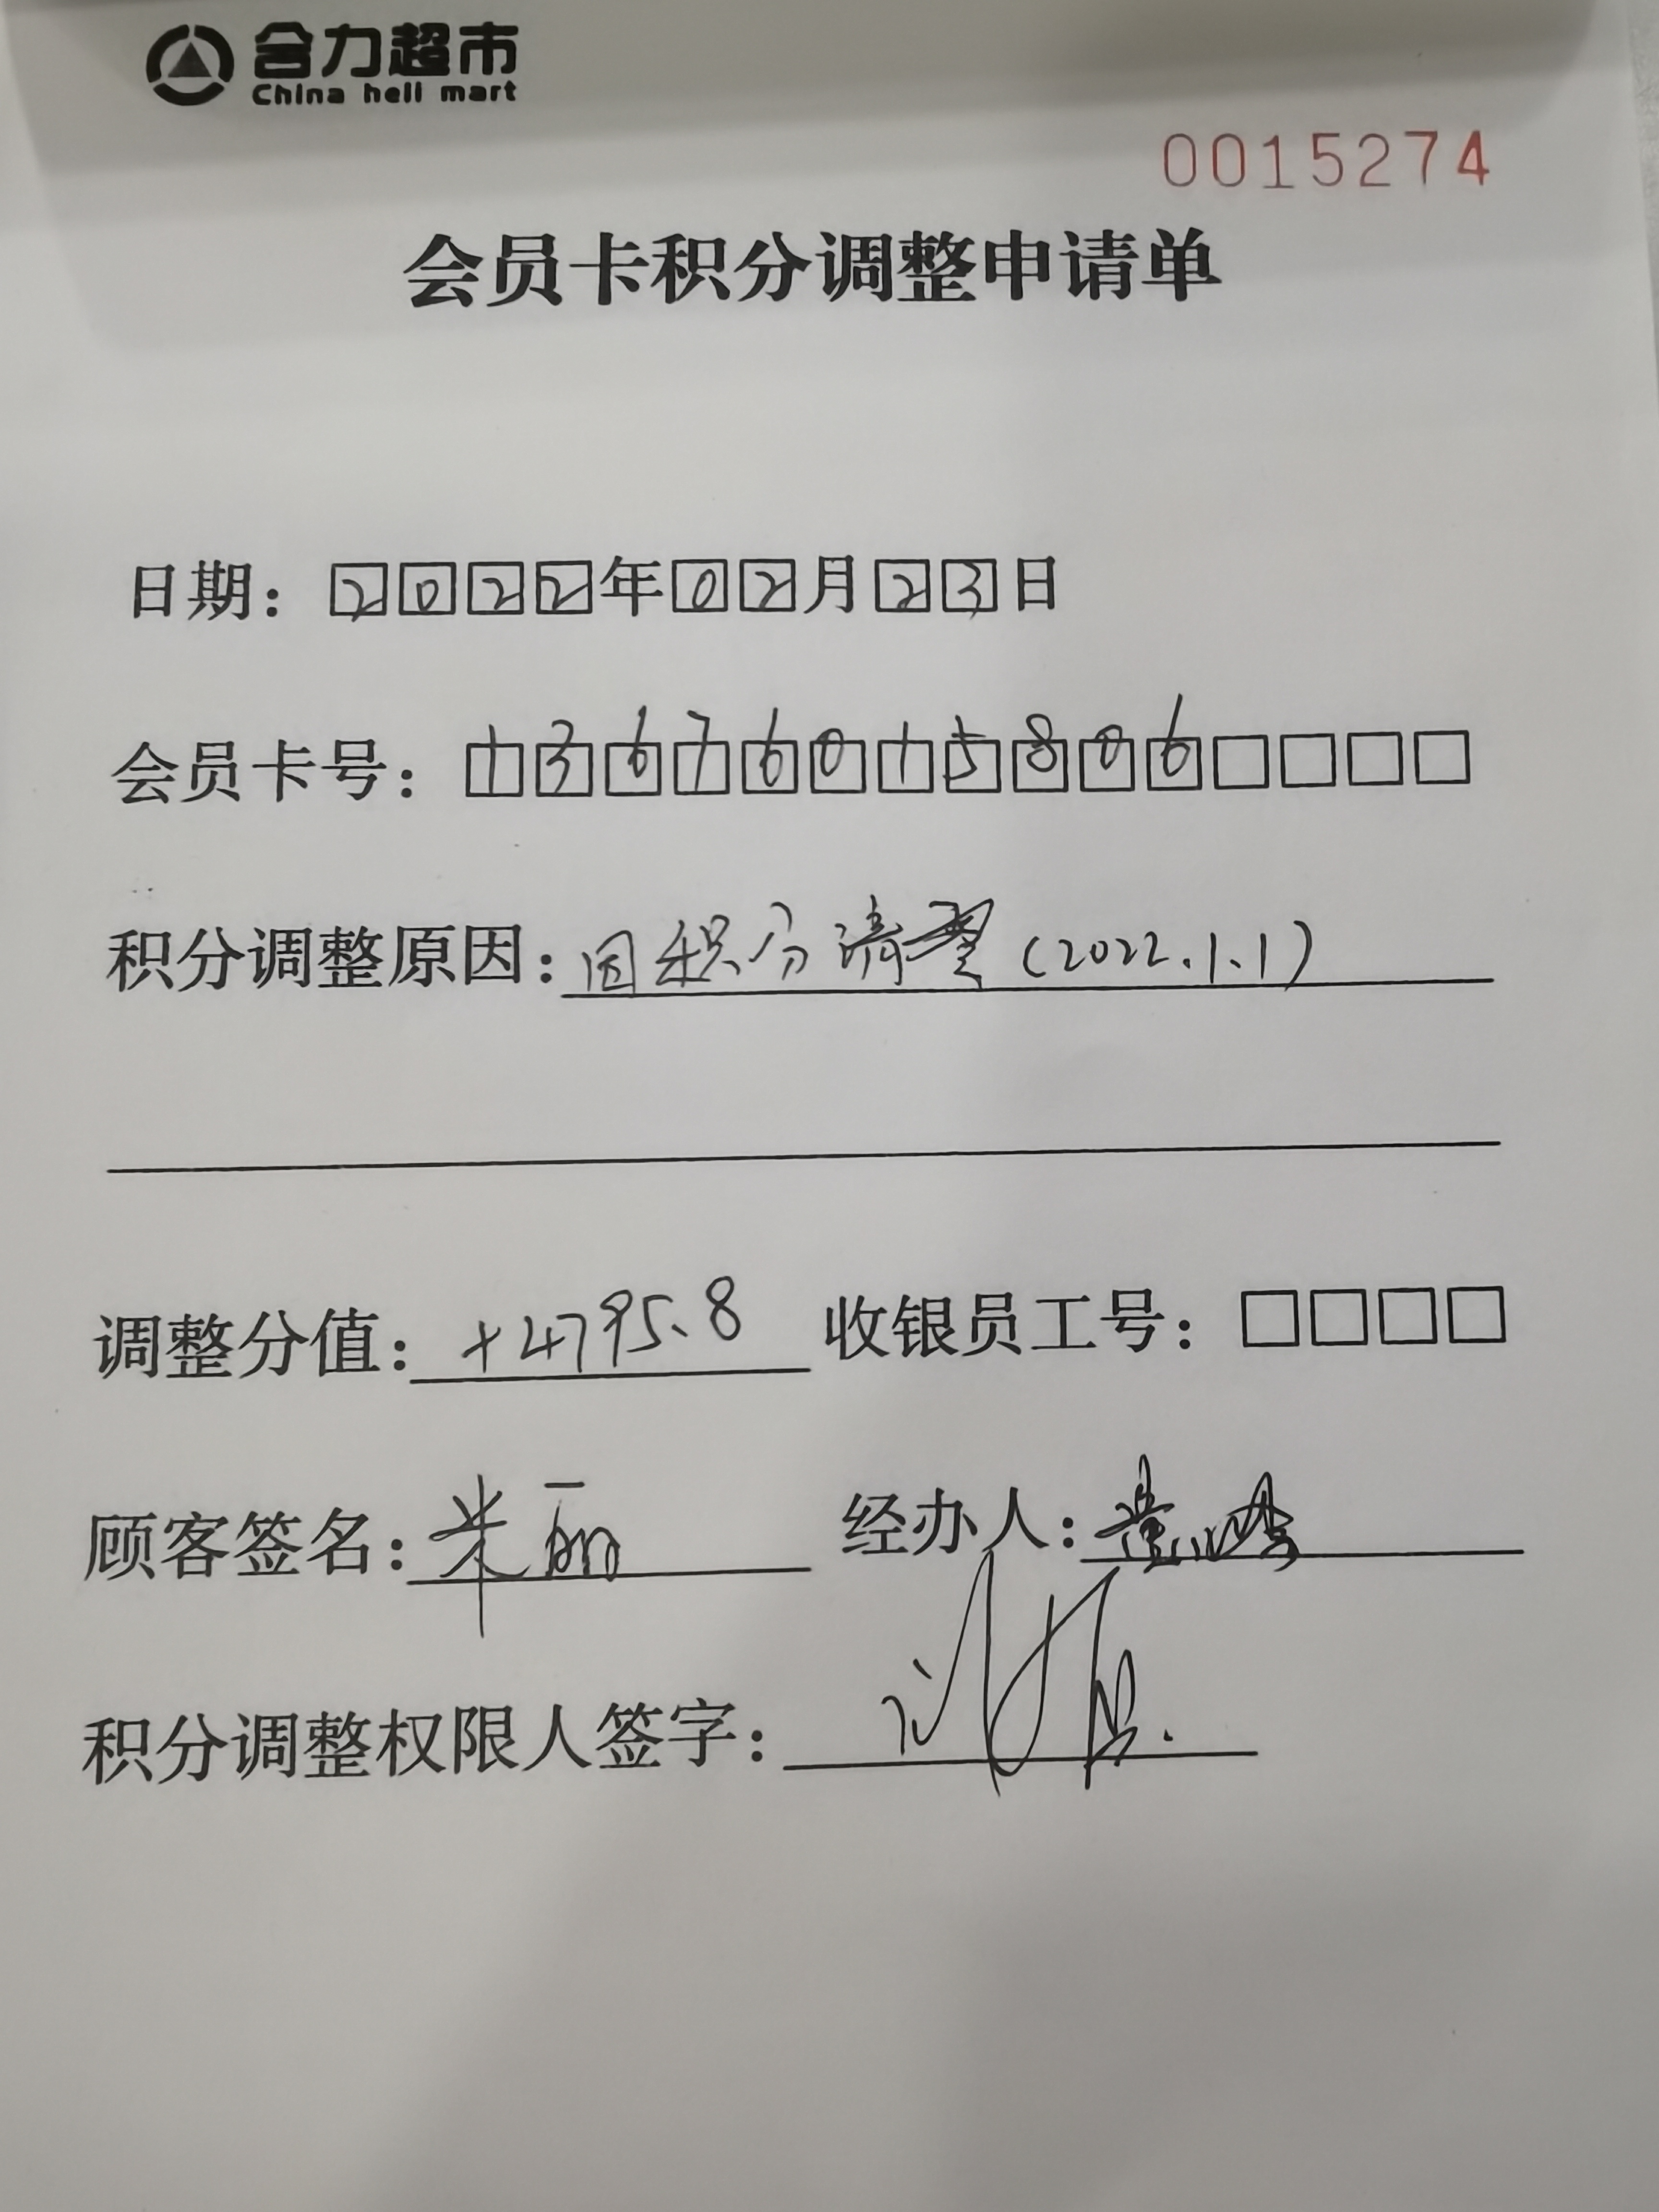 合力超市
China heli mart
0015274
会员卡积分调整申请单
日期：2022年02月23日
会员卡号：13676015806
积分调整原因：因积分清零(2022.1.1)
调整分值：+4795.8 收银员工号：
顾客签名：朱丽 经办人：
积分调整权限人签字：